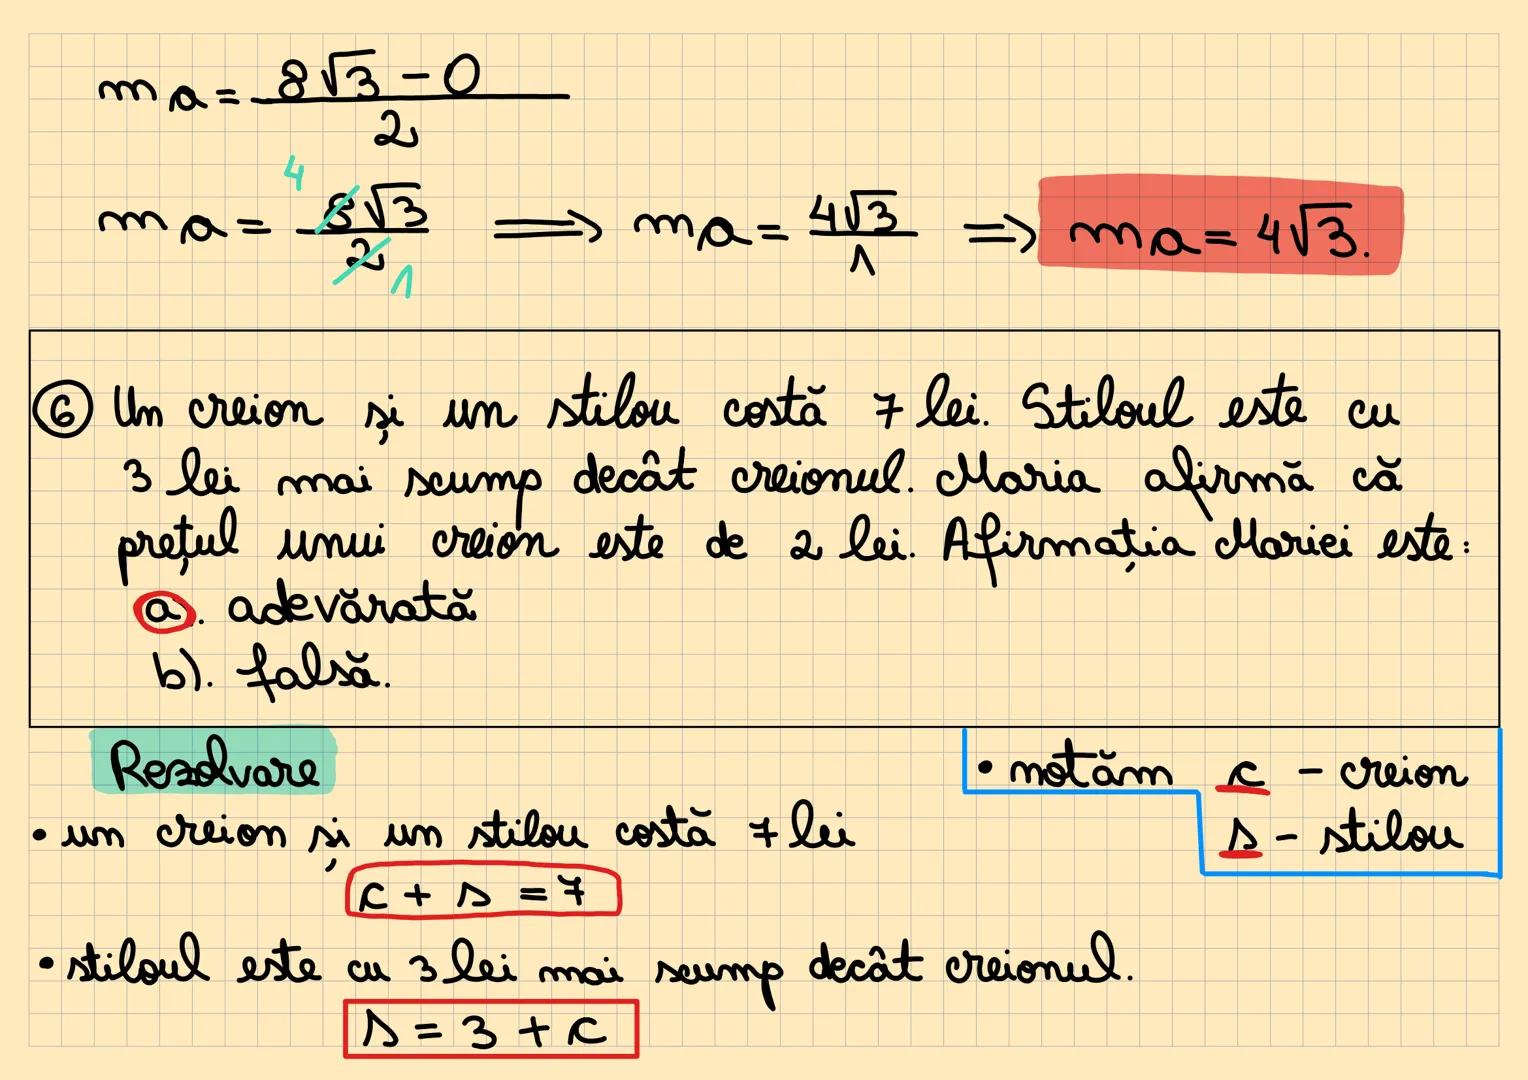 ma = (8√3 - 0)/2
ma = 8√3/2 4 1 ⟹ ma = 4√3/1 ⟹ ma = 4√3.
⑥ Un creion și un stilou costă 7 lei. Stiloul este cu
3 lei mai scump decât creionul. Maria afirmă că
prețul unui creion este de 2 lei. Afirmația Mariei este:
a). adevărată
b). falsă.
Rezolvare
• notăm c - creion
s - stilou
• un creion și un stilou costă 7 lei
c + s = 7
• stiloul este cu 3 lei mai scump decât creionul.
s = 3 + c